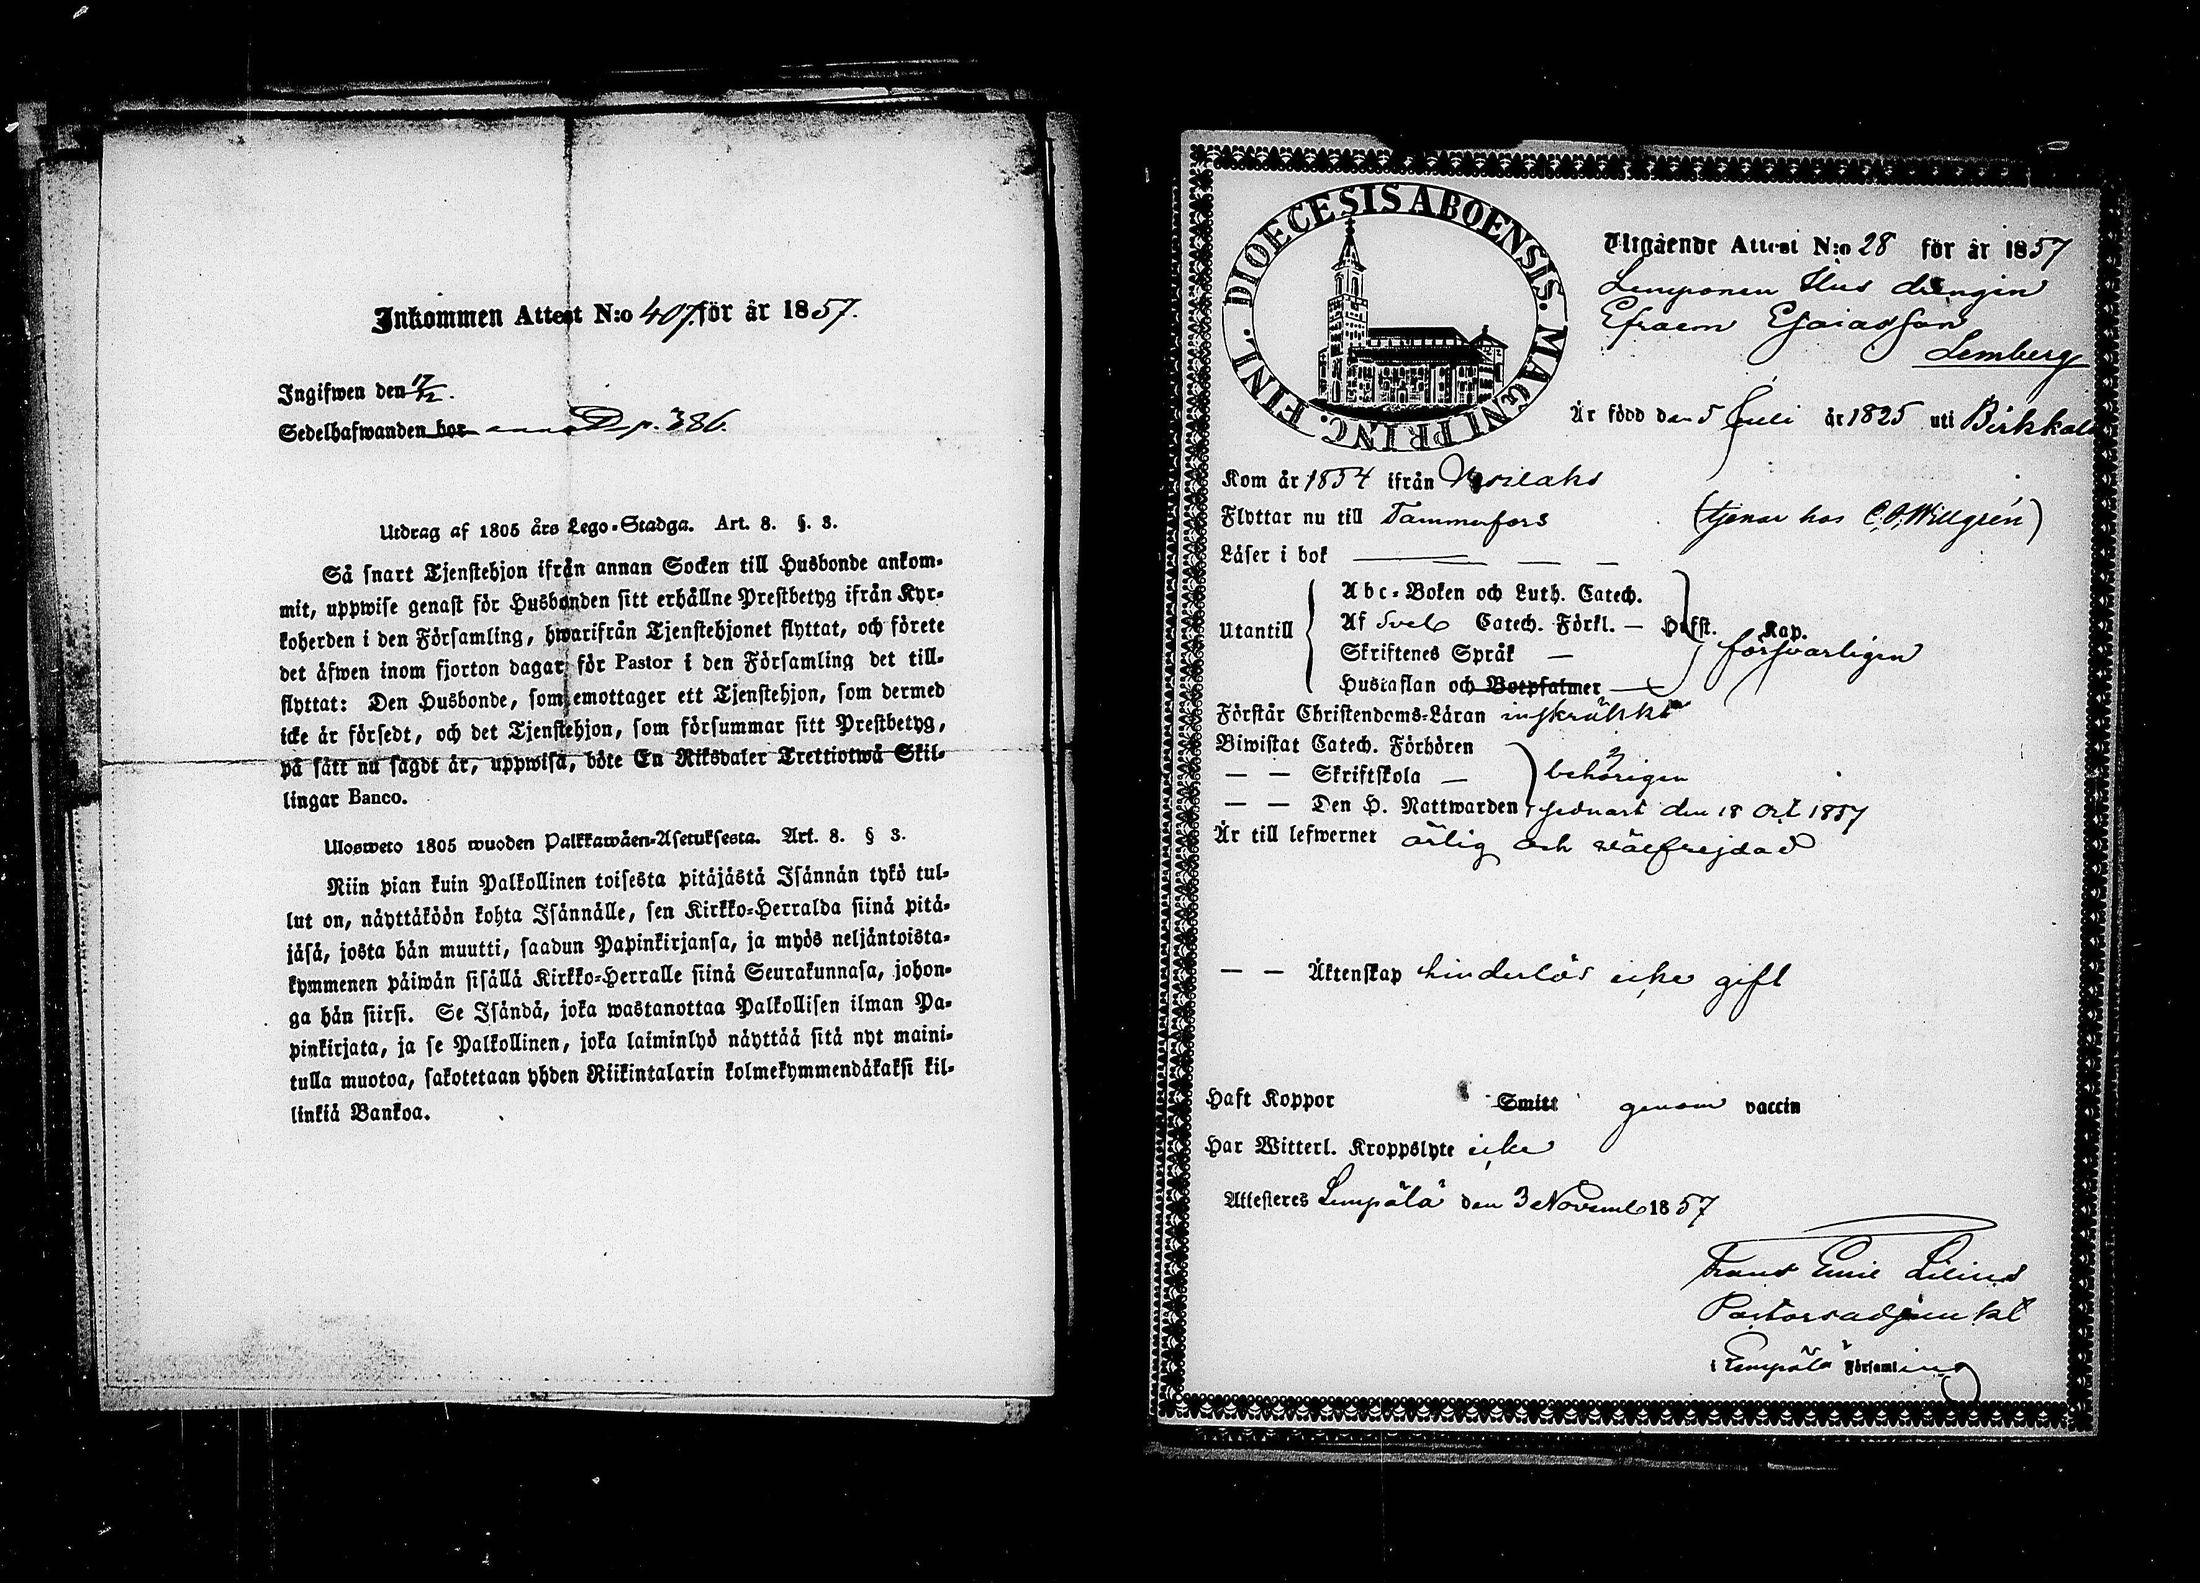 Inkommen Attest N:o 407. för år 1857.
Ingifwen den 17/12.
Sedelhafwanden bor anna D p. 386.
Utdrag af 1805 års Lego-Stadga. Art. 8. §. 3.
Så snart Tjenstehjon ifrån annan Socken till Husbonde ankom-
mit, uppwise genast för Husbonden sitt erhållne Prestbetyg ifrån Kyr-
koherden i den Församling, hwarifrån Tjenstehjonet flyttat, och förete
det äfwen inom fjorton dagar för Pastor i den Församling det till-
flyttat: Den Husbonde, som emottager ett Tjenstehjon, som dermed
icke är försedt, och det Tjenstehjon, som försummar sitt Prestbetyg,
på sätt nu sagdt är, uppwisa, böte En Riksdaler Trettiotwå Skil-
lingar Banco.
Ulosweto 1805 wuoden Palkkawäen-Asetuksesta. Art. 8. § 3.
Niin pian kuin Palkollinen toisesta pitäjästä Isännän tykö tul-
lut on, näyttäköön kohta Isännälle, sen Kirkko-Herralda siinä pitä-
jäsä, josta hän muutti, saadun Papinkirjansa, ja myös neljäntoista-
kymmenen päiwän sisällä Kirkko-Herralle siinä Seurakunnasa, johon-
ga hän siirsi. Se Isändä, joka wastanottaa Palkollisen ilman Pa-
pinkirjata, ja se Palkollinen, joka laiminlyö näyttää sitä nyt maini-
tulla muotoa, sakotetaan yhden Riikintalarin kolmekymmendäkaksi kil-
linkiä Bankoa.
DIOECESIS ABOENSIS. MAGNI PRINC. FINL.
Utgående Attest N:o 28 för år 1857
Lemponen Hus drengen
Efraem Esaiasson
Lemberg
Är född den 5 Juli år 1825 uti Birkkala
Kom år 1854 ifrån Wesilaks
Flyttar nu till Tammerfors (tjenar hos C. O. Willgrén)
Läser i bok
Abc-Boken och Luth. Catech.
Utantill Af Sveb Catech. Förkl. — Hufst. Kap.
Skriftenes Språk — försvarligen
Hustaflan och Botpsalmer —
Förstår Christendoms-Läran inskränkt
Biwistat Catech. Förhören
— — Skriftskola — behörigen
— — Den H. Nattwarden, sednast den 18 Oct 1857
Är till lefwernet ärlig och välfrejdad
— — Äktenskap hinderlös icke gift
Haft Koppor Smitt genom vaccin
Har Witterl. Kroppslyte icke
Attesteres Lempälä den 3 Novemb 1857
Frans Emil Lilius
Pastorsadjunkt
i Lempälä Församling